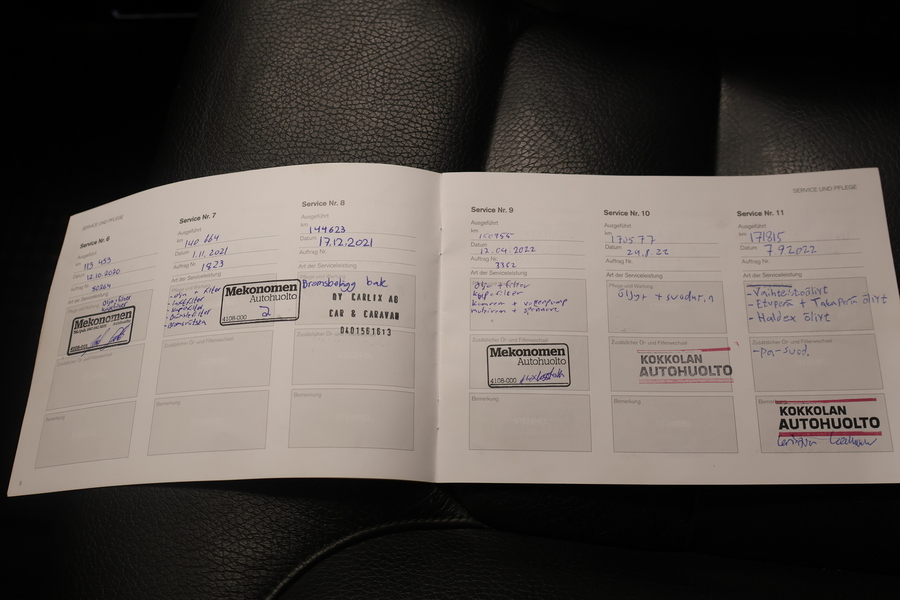 SERVICE UND PFLEGE
Service Nr. 6
Ausgeführt
km 113 433
Datum 12.10.2020
Auftrag Nr.
Art der Serviceleistung
Mekonomen
Autohuolto
Bemerkung
Service Nr. 7
Ausgeführt
km 140 664
Datum 1.11.2021
Auftrag Nr. 1823
Art der Serviceleistung
Mekonomen
Autohuolto
4108-000
2
Zusätzlicher Öl- und Filterwechsel
Bemerkung
Service Nr. 8
Ausgeführt
km 144623
Datum 17.12.2021
Auftrag Nr.
Art der Serviceleistung
Pflege und Wartung
Bromsbelägg bak
OY CARLIX AB
CAR & CARAVAN
0401561613
Zusätzlicher Öl- und Filterwechsel
Bemerkung
Service Nr. 9
Ausgeführt
km
Datum 12.04.2022
Auftrag Nr. 3362
Art der Serviceleistung
Öljy + filter
Zusätzlicher Öl- und Filterwechsel
Mekonomen
Autohuolto
4108-000
Bemerkung
Service Nr. 10
Ausgeführt
km 170577
Datum 24.8.22
Auftrag Nr.
Art der Serviceleistung
Pflege und Wartung
Öljyt + suodat.n
Zusätzlicher Öl- und Filterwechsel
KOKKOLAN
AUTOHUOLTO
Bemerkung
SERVICE UND PFLEGE
Service Nr. 11
Ausgeführt
km 171815
Datum 7.9.2022
Auftrag Nr.
Art der Serviceleistung
- Vaihteistoöljyt
- Etuperä + Takaperä öljyt
- Haldex öljyt
Zusätzlicher Öl- und Filterwechsel
- pa-suod.
KOKKOLAN
AUTOHUOLTO